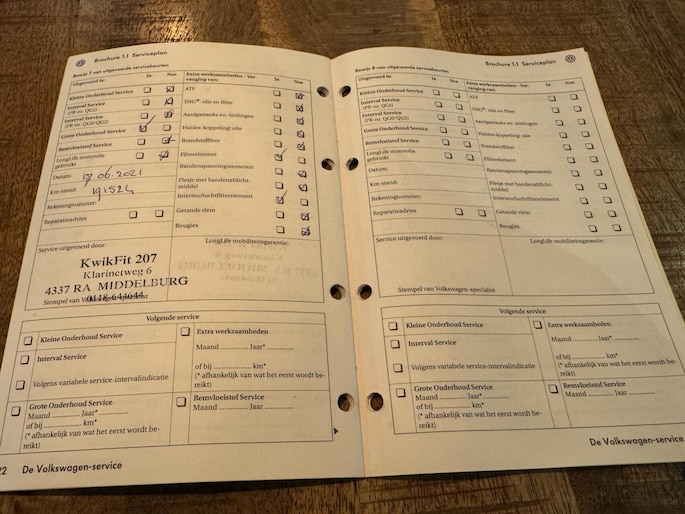 Brochure 1.1 Serviceplan
Bewijs 7 van uitgevoerde servicebeurten
Uitgevoerd is: Ja Nee
Kleine Onderhoud Service
Interval Service
(PR-nr. QG1)
Interval Service
(PR-nr. QG0/QG2)
Grote Onderhoud Service
Remvloeistof Service
LongLife motorolie
gebruikt
Datum: 06.2021
Km-stand: 191524
Rekeningnummer:
Reparatieadvies
Extra werkzaamheden - Ver-
vanging van: Ja Nee
ATF
DSG®: olie en filter
Aardgastanks en -leidingen
Haldex-koppeling: olie
Brandstoffilter
Filterelement
Bandenspanningssensoren
Flesje met bandenafdicht-
middel
Interieurluchtfilterelement
Getande riem
Bougies
Service uitgevoerd door:
LongLife mobiliteitsgarantie:
KwikFit 207
Klarinetweg 6
4337 RA MIDDELBURG
0118-644644
Stempel van Volkswagen-specialist
Volgende service
Kleine Onderhoud Service
Interval Service
Volgens variabele service-intervalindicatie
Extra werkzaamheden
Maand .......... Jaar* ..........
of bij .......... km*
(* afhankelijk van wat het eerst wordt be-
reikt)
Grote Onderhoud Service
Maand .......... Jaar* ..........
of bij .......... km*
(* afhankelijk van wat het eerst wordt be-
reikt)
Remvloeistof Service
Maand .......... Jaar ..........
22 De Volkswagen-service
Brochure 1.1 Serviceplan
Bewijs 8 van uitgevoerde servicebeurten
Uitgevoerd is: Ja Nee
Kleine Onderhoud Service
Interval Service
(PR-nr. QG1)
Interval Service
(PR-nr. QG0/QG2)
Grote Onderhoud Service
Remvloeistof Service
LongLife motorolie
gebruikt
Datum:
Km-stand:
Rekeningnummer:
Reparatieadvies
Extra werkzaamheden - Ver-
vanging van: Ja Nee
ATF
DSG®: olie en filter
Aardgastanks en -leidingen
Haldex-koppeling: olie
Brandstoffilter
Filterelement
Bandenspanningssensoren
Flesje met bandenafdicht-
middel
Interieurluchtfilterelement
Getande riem
Bougies
Service uitgevoerd door:
LongLife mobiliteitsgarantie:
Stempel van Volkswagen-specialist
Volgende service
Kleine Onderhoud Service
Interval Service
Volgens variabele service-intervalindicatie
Extra werkzaamheden
Maand .......... Jaar* ..........
of bij .......... km*
(* afhankelijk van wat het eerst wordt be-
reikt)
Grote Onderhoud Service
Maand .......... Jaar* ..........
of bij .......... km*
(* afhankelijk van wat het eerst wordt be-
reikt)
Remvloeistof Service
Maand .......... Jaar ..........
De Volkswagen-service